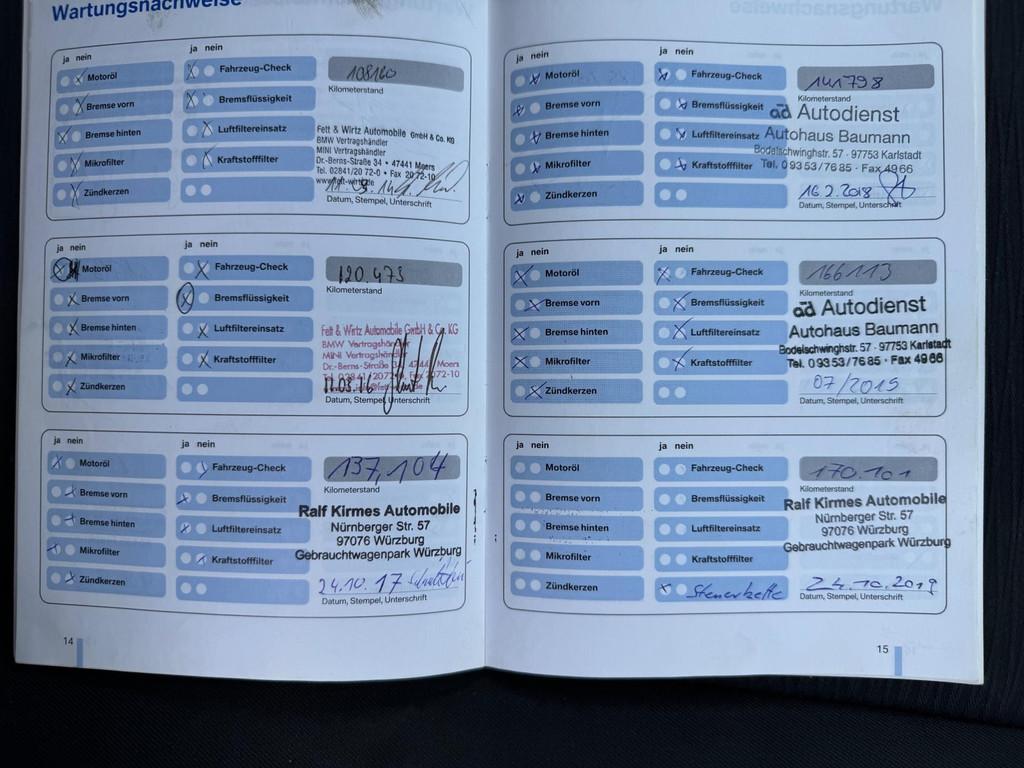 Wartungsnachweise
ja nein
ja nein
Motoröl
Fahrzeug-Check
108160
Kilometerstand
Bremse vorn
Bremsflüssigkeit
Bremse hinten
Luftfiltereinsatz
Fett & Wirtz Automobile GmbH & Co. KG
BMW Vertragshändler
MINI Vertragshändler
Mikrofilter
Kraftstofffilter
Dr.-Berns-Straße 34 • 47441 Moers
Tel. 02841/20 72-0 • Fax 20 72-10
Zündkerzen
Datum, Stempel, Unterschrift
ja nein
ja nein
Motoröl
Fahrzeug-Check
120.473
Kilometerstand
Bremse vorn
Bremsflüssigkeit
Bremse hinten
Luftfiltereinsatz
Fett & Wirtz Automobile GmbH & Co. KG
BMW Vertragshändler
MINI Vertragshändler
Mikrofilter
Kraftstofffilter
Dr.-Berns-Straße 34 47441 Moers
Zündkerzen
11.03.16
Datum, Stempel, Unterschrift
ja nein
ja nein
Motoröl
Fahrzeug-Check
137,104
Kilometerstand
Bremse vorn
Bremsflüssigkeit
Ralf Kirmes Automobile
Nürnberger Str. 57
Bremse hinten
Luftfiltereinsatz
97076 Würzburg
Mikrofilter
Kraftstofffilter
Gebrauchtwagenpark Würzburg
Zündkerzen
24.10.17
Datum, Stempel, Unterschrift
14
ja nein
ja nein
Motoröl
Fahrzeug-Check
141798
Kilometerstand
Bremse vorn
Bremsflüssigkeit
ad Autodienst
Bremse hinten
Luftfiltereinsatz
Autohaus Baumann
Bodelschwinghstr. 57 · 97753 Karlstadt
Mikrofilter
Kraftstofffilter
Tel. 09353/7685 · Fax 4966
Zündkerzen
16.2.2018
Datum, Stempel, Unterschrift
ja nein
ja nein
Motoröl
Fahrzeug-Check
166113
Kilometerstand
Bremse vorn
Bremsflüssigkeit
ad Autodienst
Bremse hinten
Luftfiltereinsatz
Autohaus Baumann
Bodelschwinghstr. 57 · 97753 Karlstadt
Mikrofilter
Kraftstofffilter
Tel. 09353/7685 · Fax 4966
Zündkerzen
07/2019
Datum, Stempel, Unterschrift
ja nein
ja nein
Motoröl
Fahrzeug-Check
170.101
Kilometerstand
Bremse vorn
Bremsflüssigkeit
Ralf Kirmes Automobile
Nürnberger Str. 57
Bremse hinten
Luftfiltereinsatz
97076 Würzburg
Mikrofilter
Kraftstofffilter
Gebrauchtwagenpark Würzburg
Zündkerzen
Steuerkette
24.10.2019
Datum, Stempel, Unterschrift
15